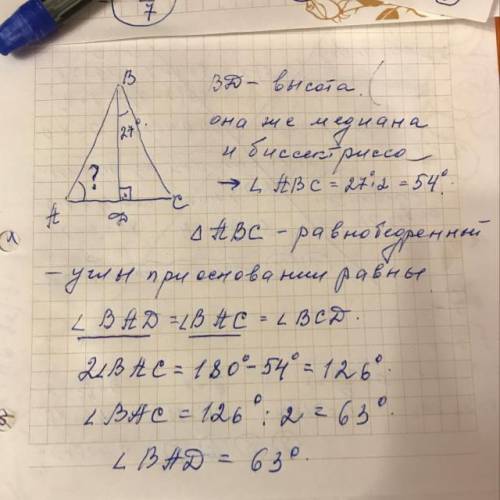 7
B
27°
?
A
D
C
BD – высота.
она же медиана
и биссектрисса
→ ∠ABC = 27°·2 = 54°.
△ABC – равнобедренный
– углы при основании равны
∠BAD = ∠BAC = ∠BCD.
2∠BAC = 180° – 54° = 126°.
∠BAC = 126° : 2 = 63°.
∠BAD = 63°.